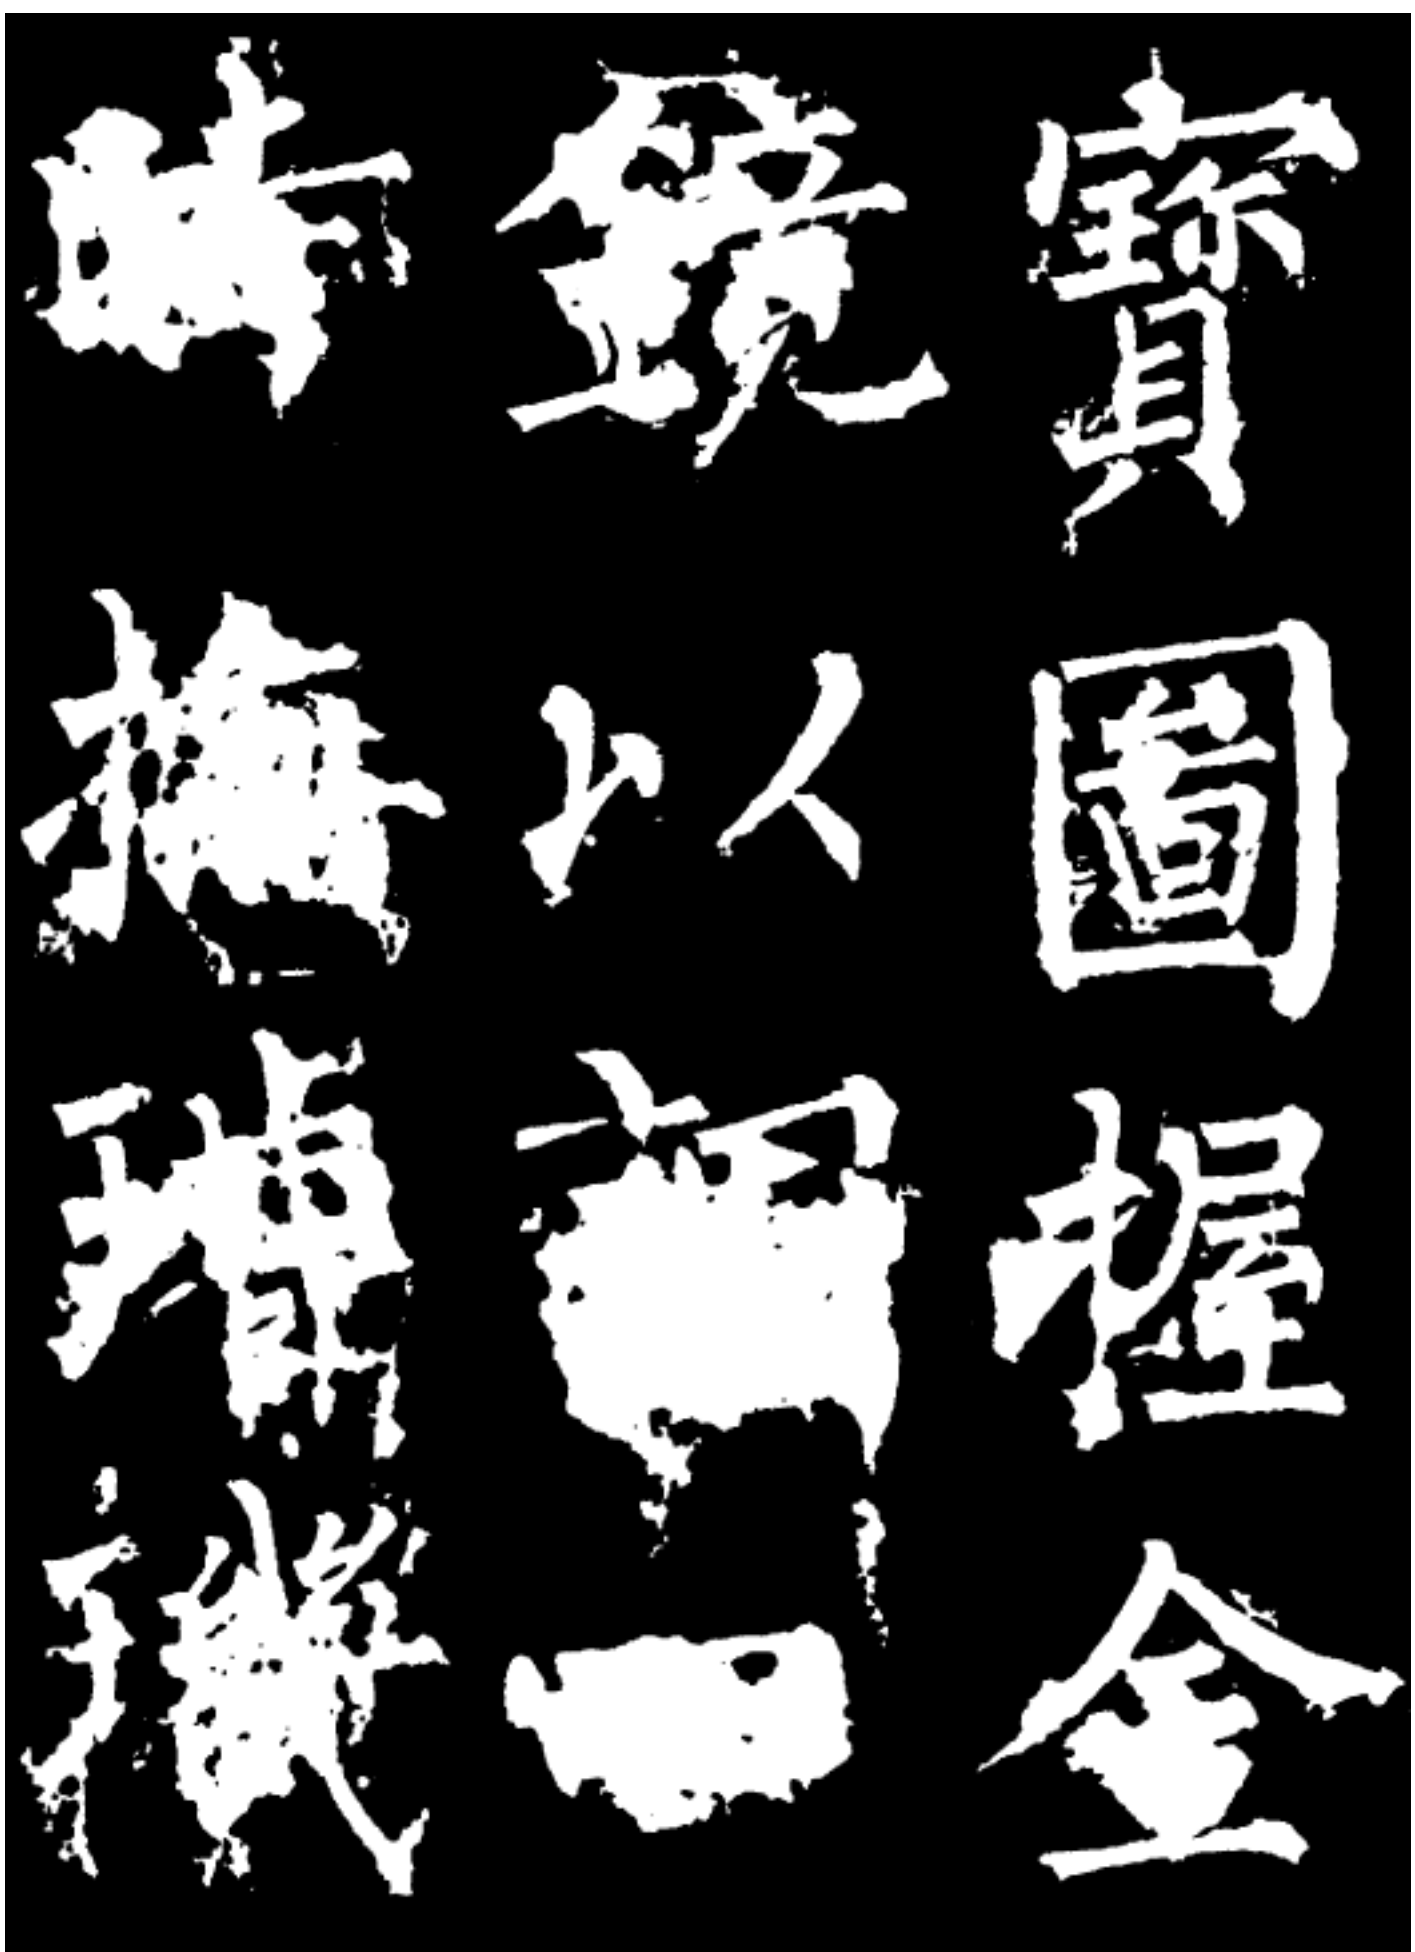 寶圖握金
鏡以調四
時撫璿璣